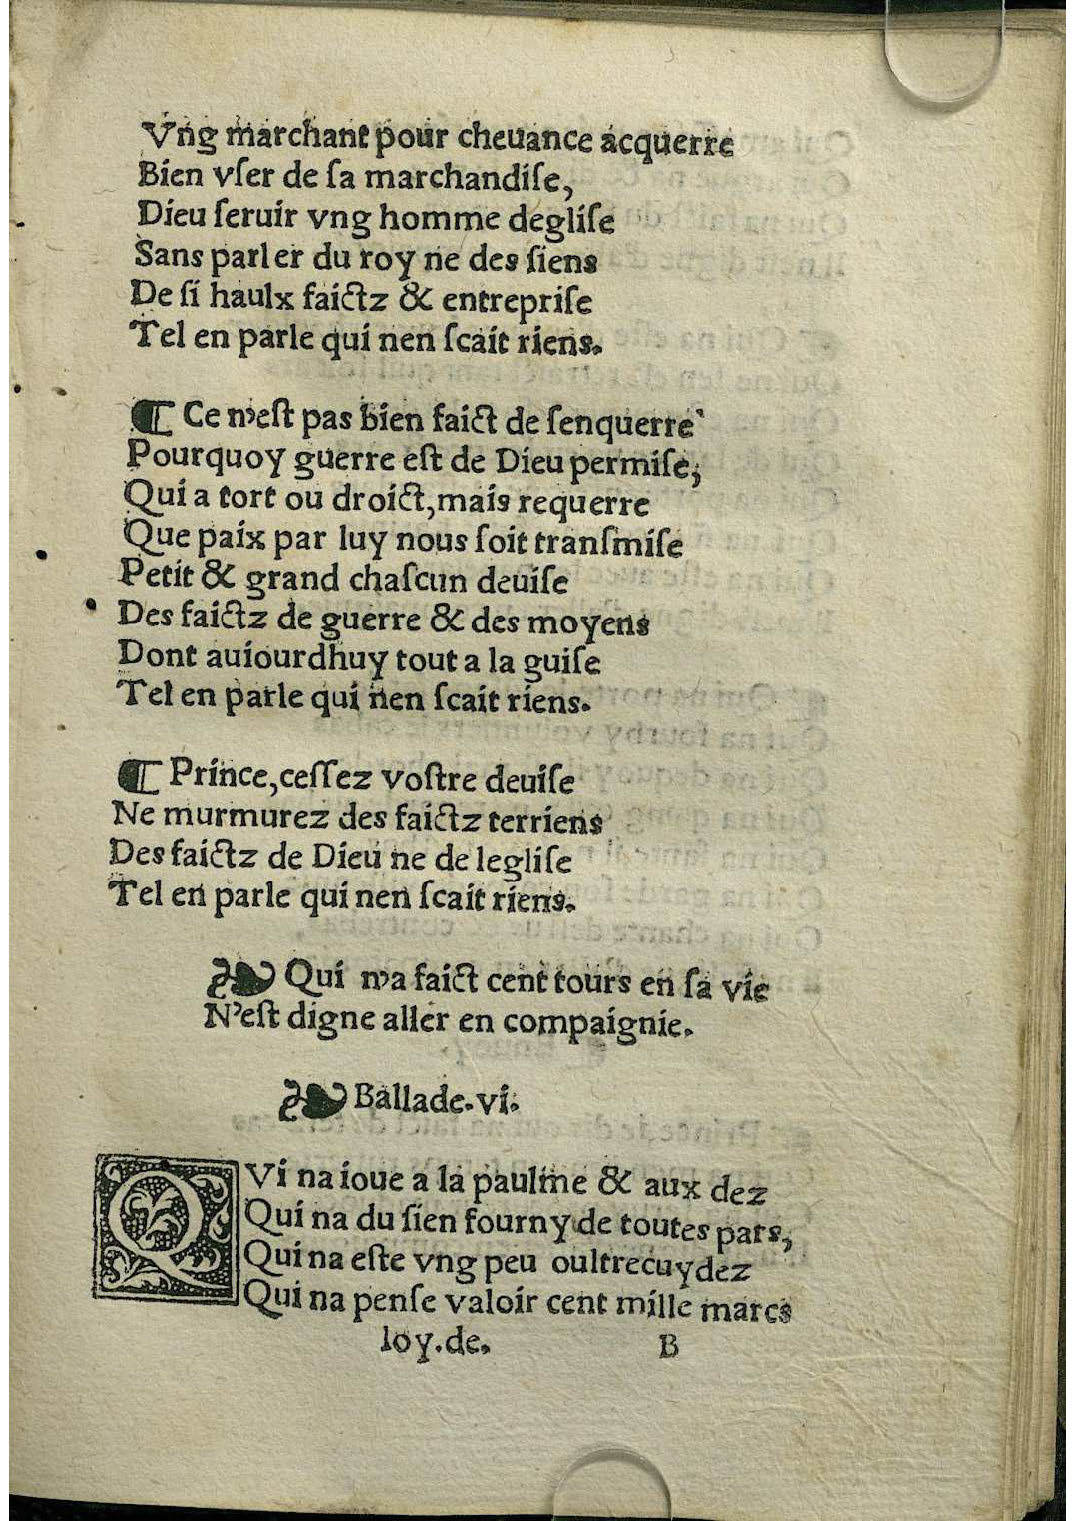 Vng marchant pour cheuance acquerre
Bien vſer de ſa marchandiſe,
Dieu ſeruir vng homme degliſe
Sans parler du roy ne des ſiens
De ſi haulx faictz & entrepriſe
Tel en parle qui nen ſcait riens.
¶ Ce n'eſt pas bien faict de ſenquerre
Pourquoy guerre eſt de Dieu permiſe,
Qui a tort ou droict, mais requerre
Que paix par luy nous ſoit tranſmiſe
Petit & grand chaſcun deuiſe
Des faictz de guerre & des moyens
Dont auiourdhuy tout a la guiſe
Tel en parle qui nen ſcait riens.
¶ Prince, ceſſez voſtre deuiſe
Ne murmurez des faictz terriens
Des faictz de Dieu ne de legliſe
Tel en parle qui nen ſcait riens.
❧ Qui n'a faict cent tours en ſa vie
N'eſt digne aller en compaignie.
❧ Ballade. vi.
QVi na ioue a la paulme & aux dez
Qui na du ſien fourny de toutes pars,
Qui na eſte vng peu oultrecuydez
Qui na penſe valoir cent mille marcs
loy. de. B